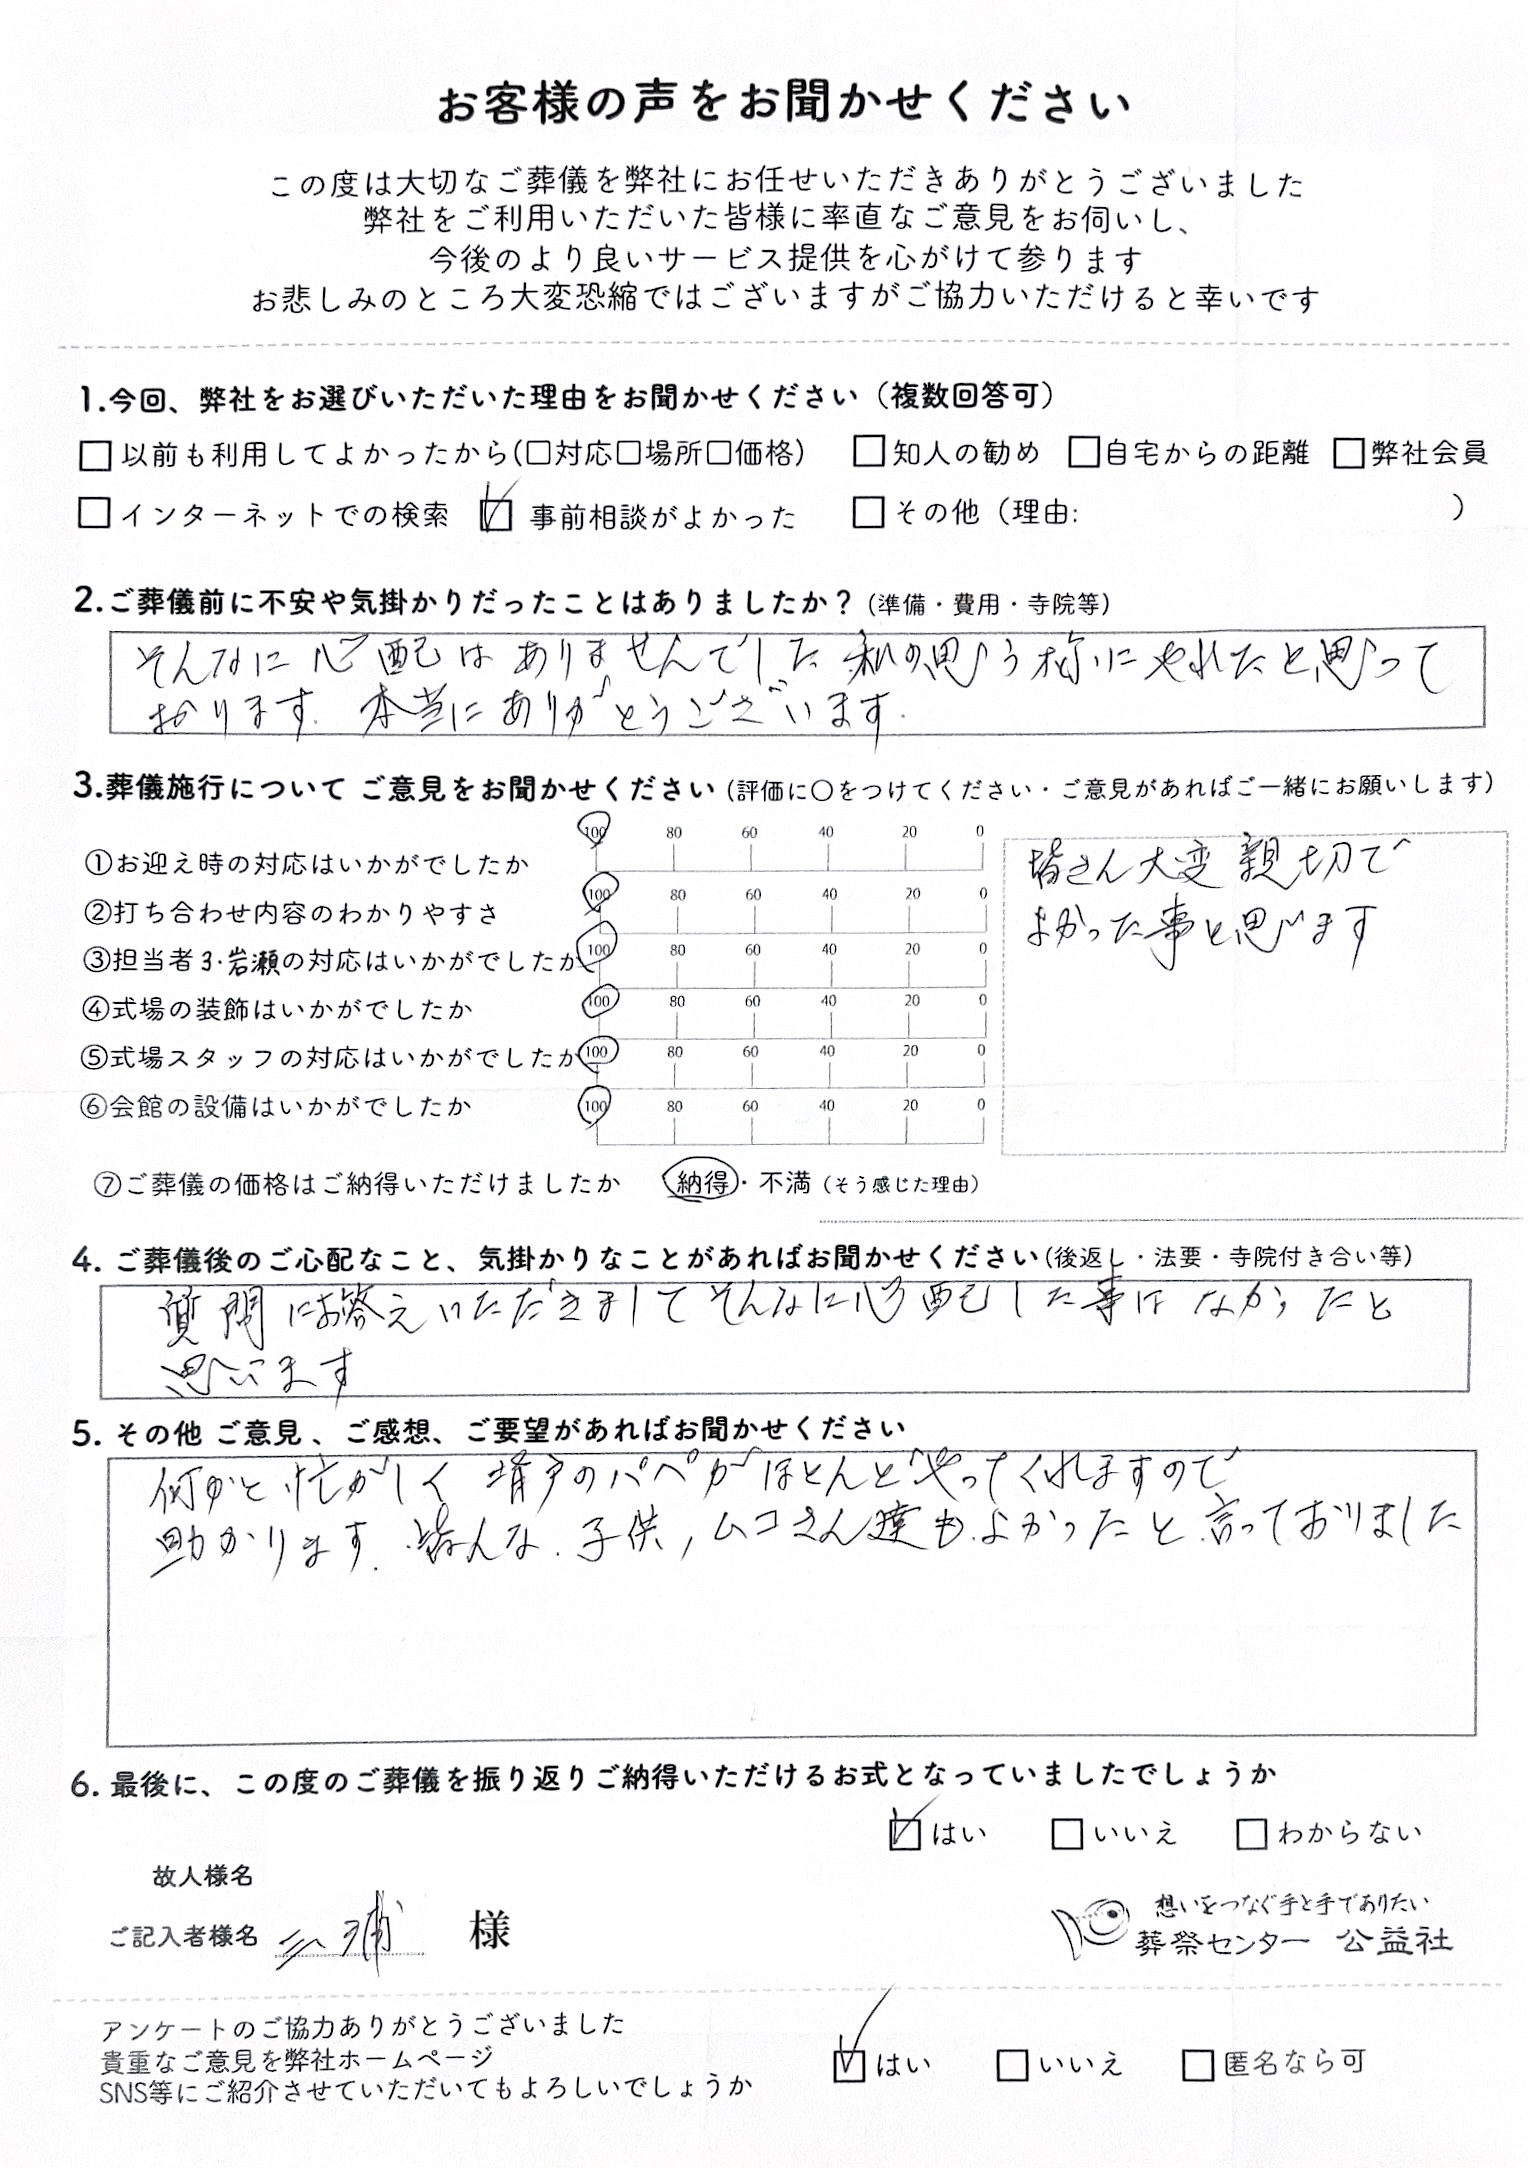 お客様の声をお聞かせください
この度は大切なご葬儀を弊社にお任せいただきありがとうございました
弊社をご利用いただいた皆様に率直なご意見をお伺いし、
今後のより良いサービス提供を心がけて参ります
お悲しみのところ大変恐縮ではございますがご協力いただけると幸いです
1.今回、弊社をお選びいただいた理由をお聞かせください（複数回答可）
□以前も利用してよかったから(□対応□場所□価格) □知人の勧め □自宅からの距離 □弊社会員
□インターネットでの検索 ☑事前相談がよかった □その他（理由: ）
2.ご葬儀前に不安や気掛かりだったことはありましたか？(準備・費用・寺院等)
そんなに心配はありませんでした 私の思う様にやれたと思って
おります. 本当にありがとうございます.
3.葬儀施行について ご意見をお聞かせください(評価に〇をつけてください・ご意見があればご一緒にお願いします)
①お迎え時の対応はいかがでしたか 100 80 60 40 20 0
②打ち合わせ内容のわかりやすさ 100 80 60 40 20 0
③担当者 岩瀬の対応はいかがでしたか 100 80 60 40 20 0
④式場の装飾はいかがでしたか 100 80 60 40 20 0
⑤式場スタッフの対応はいかがでしたか 100 80 60 40 20 0
⑥会館の設備はいかがでしたか 100 80 60 40 20 0
皆さん大変親切で
よかった事と思います
⑦ご葬儀の価格はご納得いただけましたか 納得・不満（そう感じた理由）
4. ご葬儀後のご心配なこと、気掛かりなことがあればお聞かせください(後返し・法要・寺院付き合い等)
質問にお答えいただきましてそんなに心配した事はなかったと
思います
5. その他 ご意見、ご感想、ご要望があればお聞かせください
何かと忙がしく のパパがほとんどやってくれますので
助かります. 皆んな. 子供, ムコさん達もよかったと言っておりました
6. 最後に、この度のご葬儀を振り返りご納得いただけるお式となっていましたでしょうか
☑はい □いいえ □わからない
故人様名
ご記入者様名 三浦 様
想いをつなぐ手と手でありたい
葬祭センター 公益社
アンケートのご協力ありがとうございました
貴重なご意見を弊社ホームページ
SNS等にご紹介させていただいてもよろしいでしょうか
☑はい □いいえ □匿名なら可